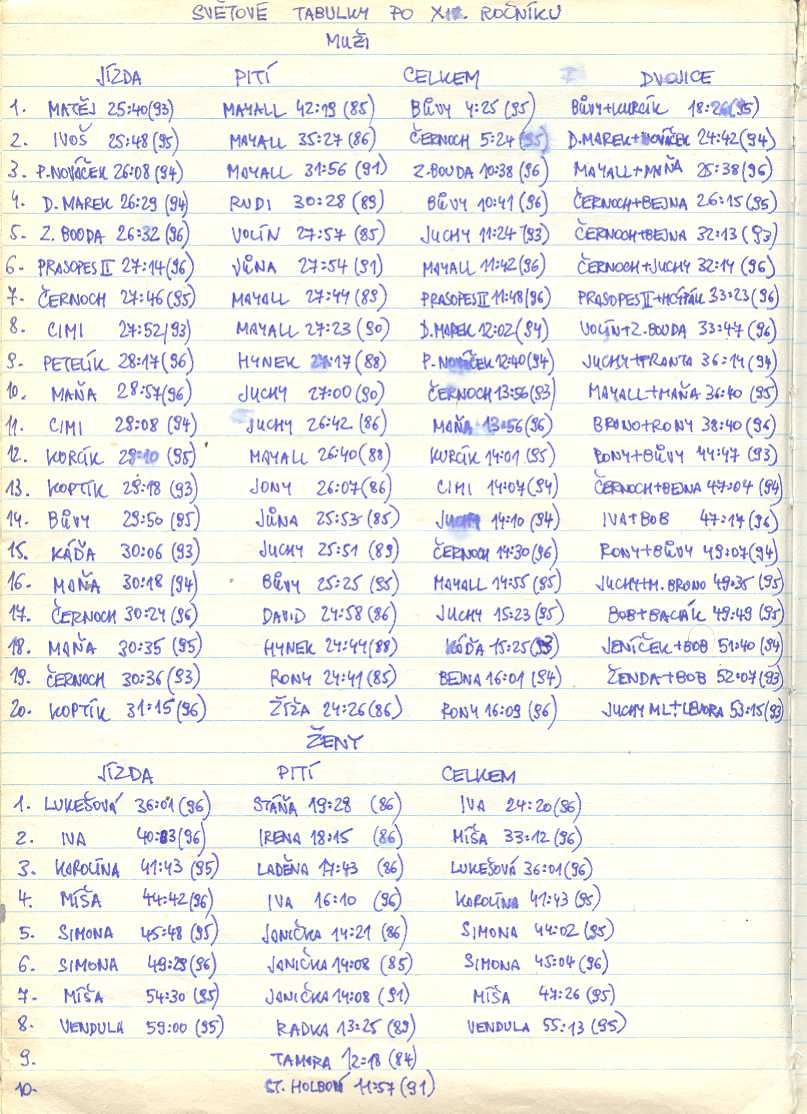 SVĚTOVÉ TABULKY PO XII. ROČNÍKU
MUŽI
JÍZDA PITÍ CELKEM DVOJICE
1. MATĚJ 25:40(93) MAYALL 42:19 (85) BŮVY 4:25 (95) BŮVY+KURCÍK 18:26(95)
2. IVOŠ 25:48 (95) MAYALL 35:27 (86) ČERNOCH 5:24 (95) D.MAREK+NOVÁČEK 24:42(94)
3. P.NOVÁČEK 26:08 (94) MAYALL 31:56 (91) Z.BOUDA 10:38 (96) MAYALL+MAŇA 25:38(96)
4. D.MAREK 26:29 (94) RUDI 30:28 (89) BŮVY 10:41 (96) ČERNOCH+BEJNA 26:15(95)
5. Z.BOUDA 26:32 (96) VOLÍN 27:57 (85) JUCHY 11:24 (93) ČERNOCH+BEJNA 32:13 (93)
6. PRASOPES II 27:14(96) JŮNA 27:54 (91) MAYALL 11:42(96) ČERNOCH+JUCHY 32:14 (96)
7. ČERNOCH 27:46(95) MAYALL 27:44 (89) PRASOPES II 11:48(96) PRASOPES II+ 33:23(96)
8. CIMI 27:52(93) MAYALL 27:23 (90) D.MAREK 12:02(94) VOLÍN+Z.BOUDA 33:47 (96)
9. PETELÍK 28:17(96) HYNEK 27:17 (88) P.NOVÁČEK 12:40(94) JUCHY+FRANTA 36:14(94)
10. MAŇA 28:57(96) JUCHY 27:00 (90) ČERNOCH 13:56(93) MAYALL+MAŇA 36:40 (95)
11. CIMI 29:08 (94) JUCHY 26:42 (86) MAŇA 13:56(96) BRUNO+RONY 38:40 (96)
12. KURCÍK 29:10 (95) MAYALL 26:40(88) KURCÍK 14:01 (95) RONY+BŮVY 44:47 (93)
13. KOPTÍK 29:18 (93) JONY 26:07(86) CIMI 14:07(94) ČERNOCH+BEJNA 47:04 (94)
14. BŮVY 29:50 (95) JŮNA 25:53 (85) JUCHY 14:10 (94) IVA+BOB 47:14(96)
15. KÁĎA 30:06 (93) JUCHY 25:51 (89) ČERNOCH 14:30(96) RONY+BŮVY 49:07(94)
16. MAŇA 30:18 (94) BŮVY 25:25 (95) MAYALL 14:55 (95) JUCHY+M.BRUNO 49:35 (95)
17. ČERNOCH 30:24 (96) DAVID 24:58 (86) JUCHY 15:23 (95) BOB+BACHÁK 49:49 (95)
18. MAŇA 30:35 (95) HYNEK 24:44(88) KÁĎA 15:25(93) JENÍČEK+BOB 51:40 (94)
19. ČERNOCH 30:36 (93) RONY 24:41(85) BEJNA 16:01 (94) ŽENDA+BOB 52:07(93)
20. KOPTÍK 31:15(96) ŽÍŽA 24:26(86) RONY 16:09 (96) JUCHY ML+LEVORA 53:15(93)
ŽENY
JÍZDA PITÍ CELKEM
1. LUKEŠOVÁ 36:01(96) STÁŇA 19:29 (86) IVA 24:20(96)
2. IVA 40:03(96) IRENA 18:15 (86) MÍŠA 33:12 (96)
3. KAROLÍNA 41:43 (95) LADĚNA 17:43 (86) LUKEŠOVÁ 36:01(96)
4. MÍŠA 44:42(96) IVA 16:10 (96) KAROLÍNA 41:43 (95)
5. SIMONA 45:48 (95) JANIČKA 14:21 (86) SIMONA 44:02 (95)
6. SIMONA 49:29(96) JANIČKA 14:08 (85) SIMONA 45:04 (96)
7. MÍŠA 54:30 (95) JANIČKA 14:08 (91) MÍŠA 47:26 (95)
8. VENDULA 59:00 (95) RADKA 13:25 (89) VENDULA 55:13 (95)
9. TAMARA 12:18 (84)
10. ST. 11:57(91)